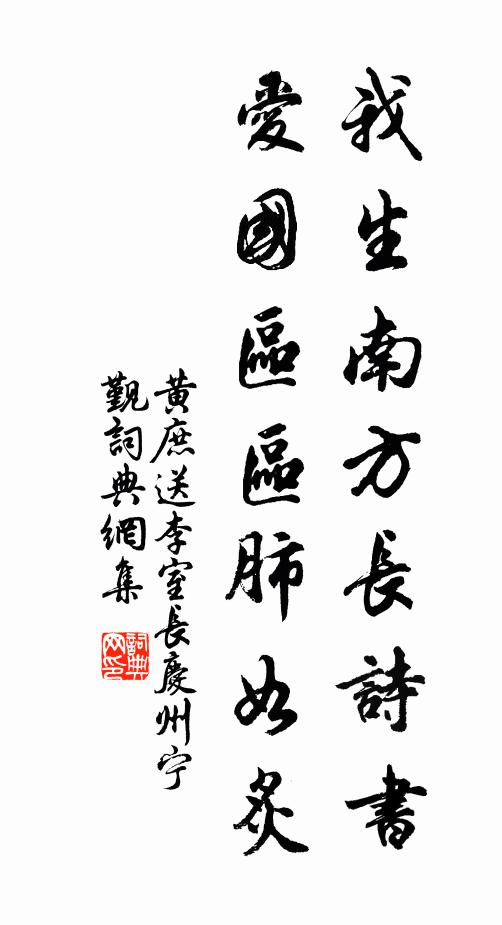 我生南方長詩書
愛國區區肺如炙
黃庶送李室長慶州宁
覲詞典網集
詞典網印